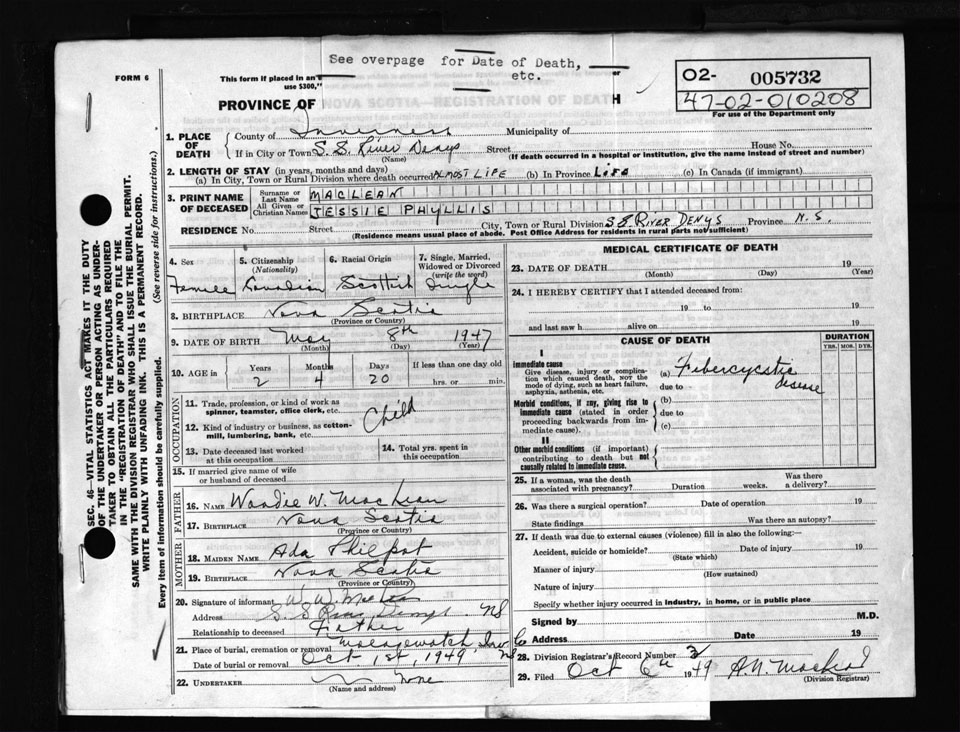 See overpage for Date of Death,
etc.
FORM 6
This form if placed in an
use $300,"
PROVINCE OF
H
NOVA SCOTIA—REGISTRATION OF DEATH
02- 005732
47-02-010208
For use of the Department only
1. PLACE OF DEATH
County of Inverness Municipality of
If in City or Town S. S. River Denys Street House No.
(Name) (If death occurred in a hospital or institution, give the name instead of street and number)
2. LENGTH OF STAY (in years, months and days)
(a) In City, Town or Rural Division where death occurred ALMOST LIFE (b) In Province LIFE (c) In Canada (if immigrant)
3. PRINT NAME OF DECEASED
Surname or Last Name MACLEAN
All Given or Christian Names JESSIE PHYLLIS
RESIDENCE No. Street City, Town or Rural Division S S RIVER DENYS Province N. S.
(Residence means usual place of abode. Post Office Address for residents in rural parts not sufficient)
4. Sex
Female
5. Citizenship
(Nationality)
Canadian
6. Racial Origin
Scottish
7. Single, Married, Widowed or Divorced
(write the word)
Single
8. BIRTHPLACE Nova Scotia
(Province or Country)
9. DATE OF BIRTH May 8th 1947
(Month) (Day) (Year)
10. AGE in Years Months Days If less than one day old
2 4 20 hrs. or min.
OCCUPATION
11. Trade, profession, or kind of work as spinner, teamster, office clerk, etc.
12. Kind of industry or business, as cotton-mill, lumbering, bank, etc.
Child
13. Date deceased last worked at this occupation
14. Total yrs. spent in this occupation
15. If married give name of wife or husband of deceased
FATHER
16. NAME Woodie W. MacLean
17. BIRTHPLACE Nova Scotia
(Province or Country)
MOTHER
18. MAIDEN NAME Ada Philpot
19. BIRTHPLACE Nova Scotia
(Province or Country)
20. Signature of informant W. W. MacLean
Address S. S River Denys. NS
Relationship to deceased Father
21. Place of burial, cremation or removal
Date of burial or removal Oct 1st, 1949 NS
22. UNDERTAKER None
(Name and address)
MEDICAL CERTIFICATE OF DEATH
23. DATE OF DEATH 19
(Month) (Day) (Year)
24. I HEREBY CERTIFY that I attended deceased from:
19 to 19
and last saw h alive on 19
CAUSE OF DEATH
DURATION
YRS. MOS. DYS.
I
Immediate cause
Give disease, injury or complication which caused death, not the mode of dying, such as heart failure, asphyxia, asthenia, etc.
(a) Fibercycstic disease
due to
Morbid conditions, if any, giving rise to immediate cause (stated in order proceeding backwards from immediate cause).
(b)
due to
(c)
II
Other morbid conditions (if important) contributing to death but not causally related to immediate cause.
25. If a woman, was the death associated with pregnancy? Duration weeks. Was there a delivery?
26. Was there a surgical operation? Date of operation 19
State findings Was there an autopsy?
27. If death was due to external causes (violence) fill in also the following:—
Accident, suicide or homicide? Date of injury 19
(State which)
Manner of injury
(How sustained)
Nature of injury
Specify whether injury occurred in industry, in home, or in public place
Signed by M.D.
Address Date 19
28. Division Registrar's Record Number 3
29. Filed Oct 6th 1949 A. N. MacLeod
(Division Registrar)
SEC. 46—VITAL STATISTICS ACT MAKES IT THE DUTY
OF THE UNDERTAKER OR PERSON ACTING AS UNDER-
TAKER TO OBTAIN ALL THE PARTICULARS REQUIRED
IN THE "REGISTRATION OF DEATH" AND TO FILE THE
SAME WITH THE DIVISION REGISTRAR WHO SHALL ISSUE THE BURIAL PERMIT.
WRITE PLAINLY WITH UNFADING INK. THIS IS A PERMANENT RECORD.
Every item of information should be carefully supplied. (See reverse side for instructions.)